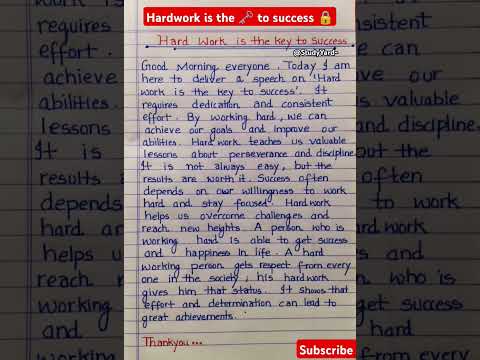 Hardwork is the 🗝 to success 🔒
Hard Work is the key to Success
@StudyYard-
Good Morning everyone. Today I am
here to deliver a speech on 'Hard
work is the key to success'. It
requires dedication and consistent
effort. By working hard, we can
achieve our goals and improve our
abilities. Hard work teaches us valuable
lessons about perseverance and discipline.
It is not always easy, but the
results are worth it. Success often
depends on our willingness to work
hard and stay focused. Hardwork
helps us overcome challenges and
reach new heights. A person who is
working hard is able to get success
and happiness in life. A hard
working person gets respect from every
one in the society, his hardwork
gives him that status. It shows that
effort and determination can lead to
great achievements.
Thankyou...
Subscribe